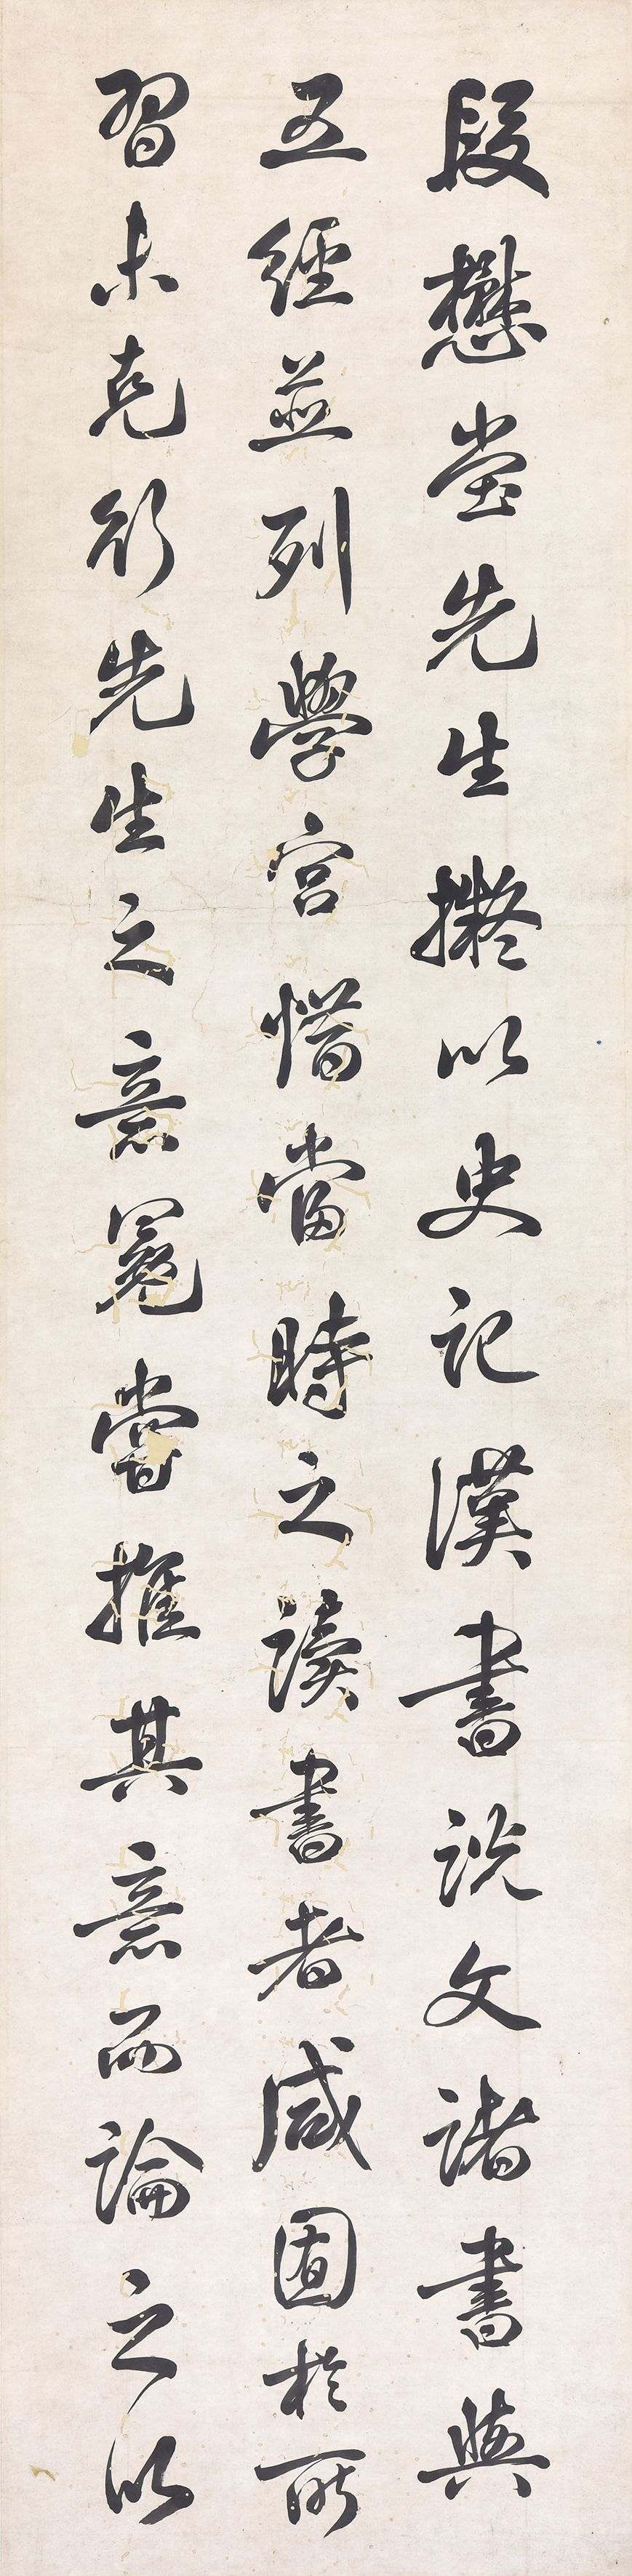 段懋堂先生擬以史記漢書説文諸書與
五經並列學宮惜當時之讀書者咸固於所
習未克行先生之意冕嘗推其意而論之以